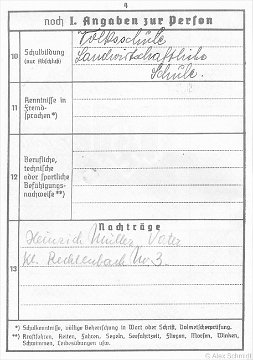 4
noch I. Angaben zur Person
10 Schulbildung (nur Abschluß)
Volksschule
Landwirtschaftliche
Schule.
11 Kenntnisse in Fremd-sprachen*)
12 Berufliche, technische oder sportliche Befähigungs-nachweise**)
Nachträge
13
Heinrich Müller, Vater
Kl. Rechtenbach No 3.
*) Schulkenntnisse, völlige Beherrschung in Wort oder Schrift, Dolmetscherprüfung.
**) Kraftfahren, Reiten, Fahren, Segeln, Seefahrtzeit, Fliegen, Morsen, Winken, Schwimmen, Leibesübungen usw.
© Alex Schmidt